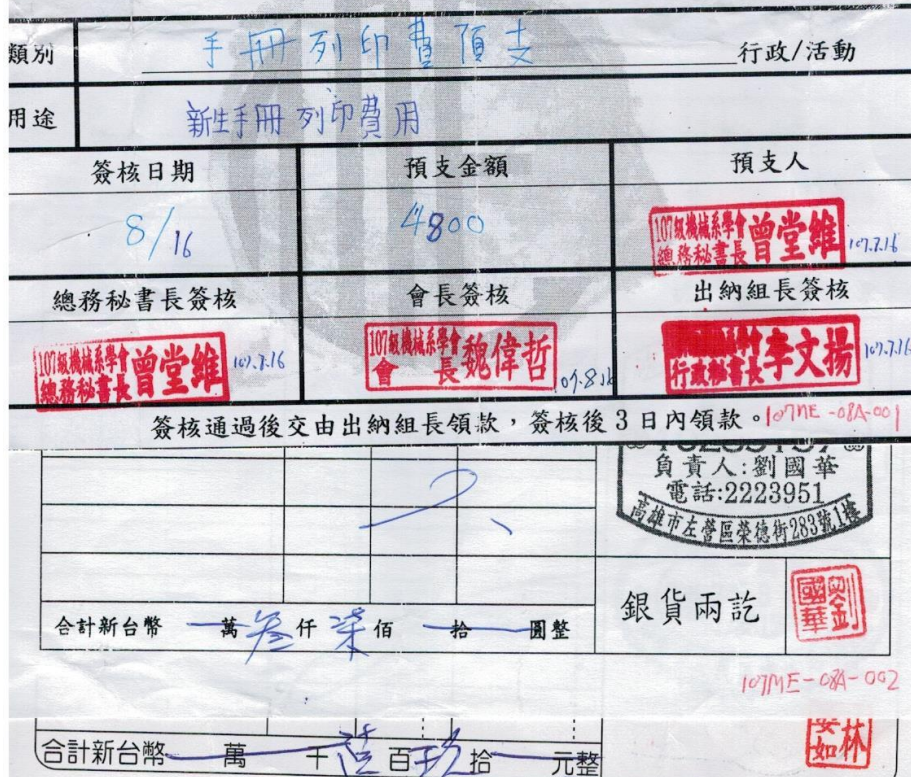 類別 手冊列印費預支 行政/活動
用途 新生手冊列印費用
簽核日期 預支金額 預支人
8/16 4800 107級機械系學會總務秘書長曾堂維 107.7.16
總務秘書長簽核 會長簽核 出納組長簽核
107級機械系學會總務秘書長曾堂維 107.7.16 107級機械系學會會長魏偉哲 107.8.16 行政秘書長李文揚 107.7.16
簽核通過後交由出納組長領款，簽核後3日內領款。107ME-08A-001
負責人:劉國華
電話:2223951
高雄市左營區榮德街283號1樓
銀貨兩訖 劉國華
合計新台幣 萬叁仟柒佰 拾 圓整
107ME-08A-002
合計新台幣 萬 千壹百玖拾 元整 林